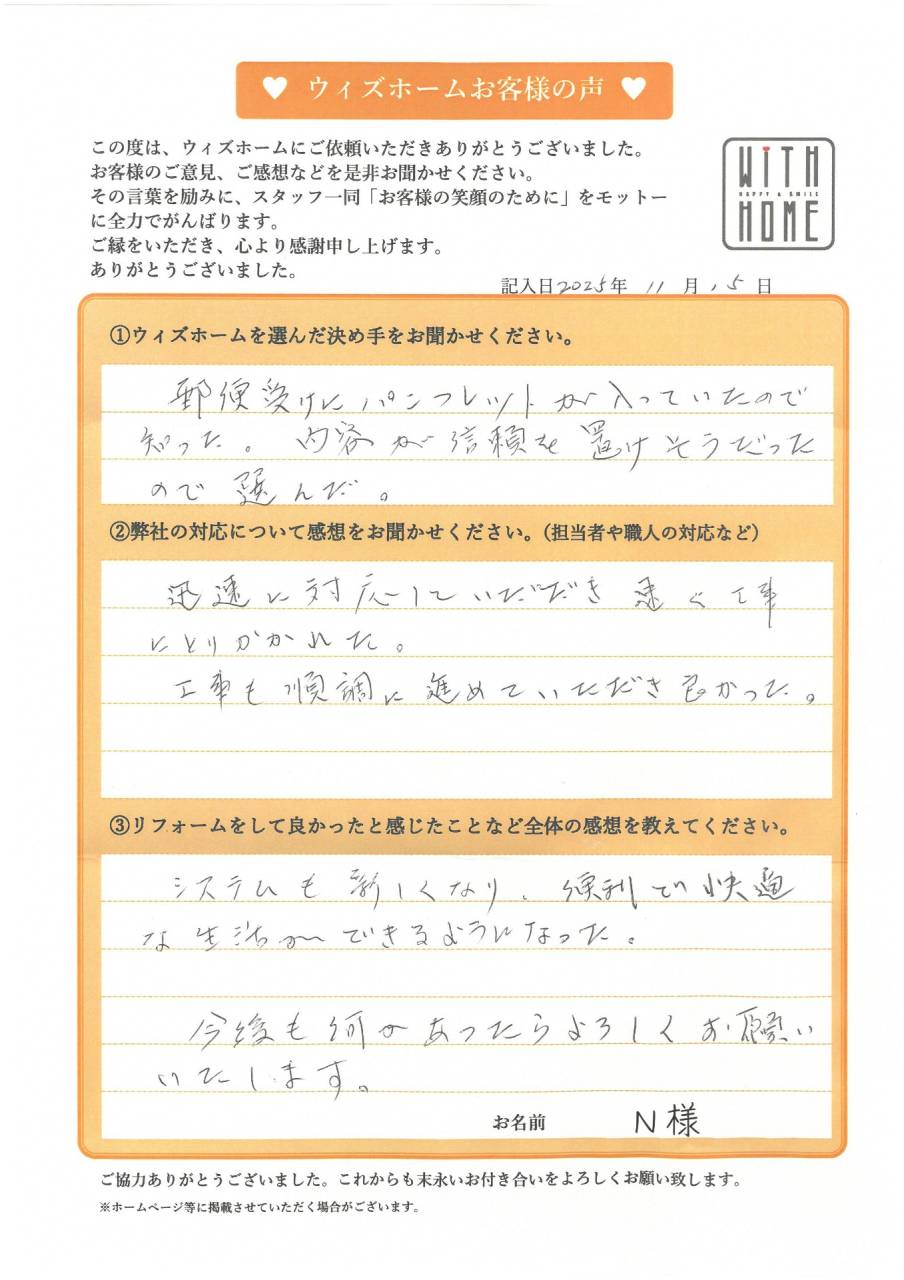 ♥ ウィズホームお客様の声 ♥
この度は、ウィズホームにご依頼いただきありがとうございました。
お客様のご意見、ご感想などを是非お聞かせください。
その言葉を励みに、スタッフ一同「お客様の笑顔のために」をモットー
に全力でがんばります。
ご縁をいただき、心より感謝申し上げます。
ありがとうございました。
WiTH
HAPPY & SMILE
HOME
記入日2025年 11 月 15 日
①ウィズホームを選んだ決め手をお聞かせください。
郵便受けにパンフレットが入っていたので
知った。内容が信頼を置けそうだった
ので選んだ。
②弊社の対応について感想をお聞かせください。(担当者や職人の対応など)
迅速に対応していただだき速く工事
にとりかかれた。
工事も順調に進めていただき良かった。
③リフォームをして良かったと感じたことなど全体の感想を教えてください。
システムも新しくなり、便利で快適
な生活ができるようになった。
今後も何かあったらよろしくお願い
いたします。
お名前 N様
ご協力ありがとうございました。これからも末永いお付き合いをよろしくお願い致します。
※ホームページ等に掲載させていただく場合がございます。